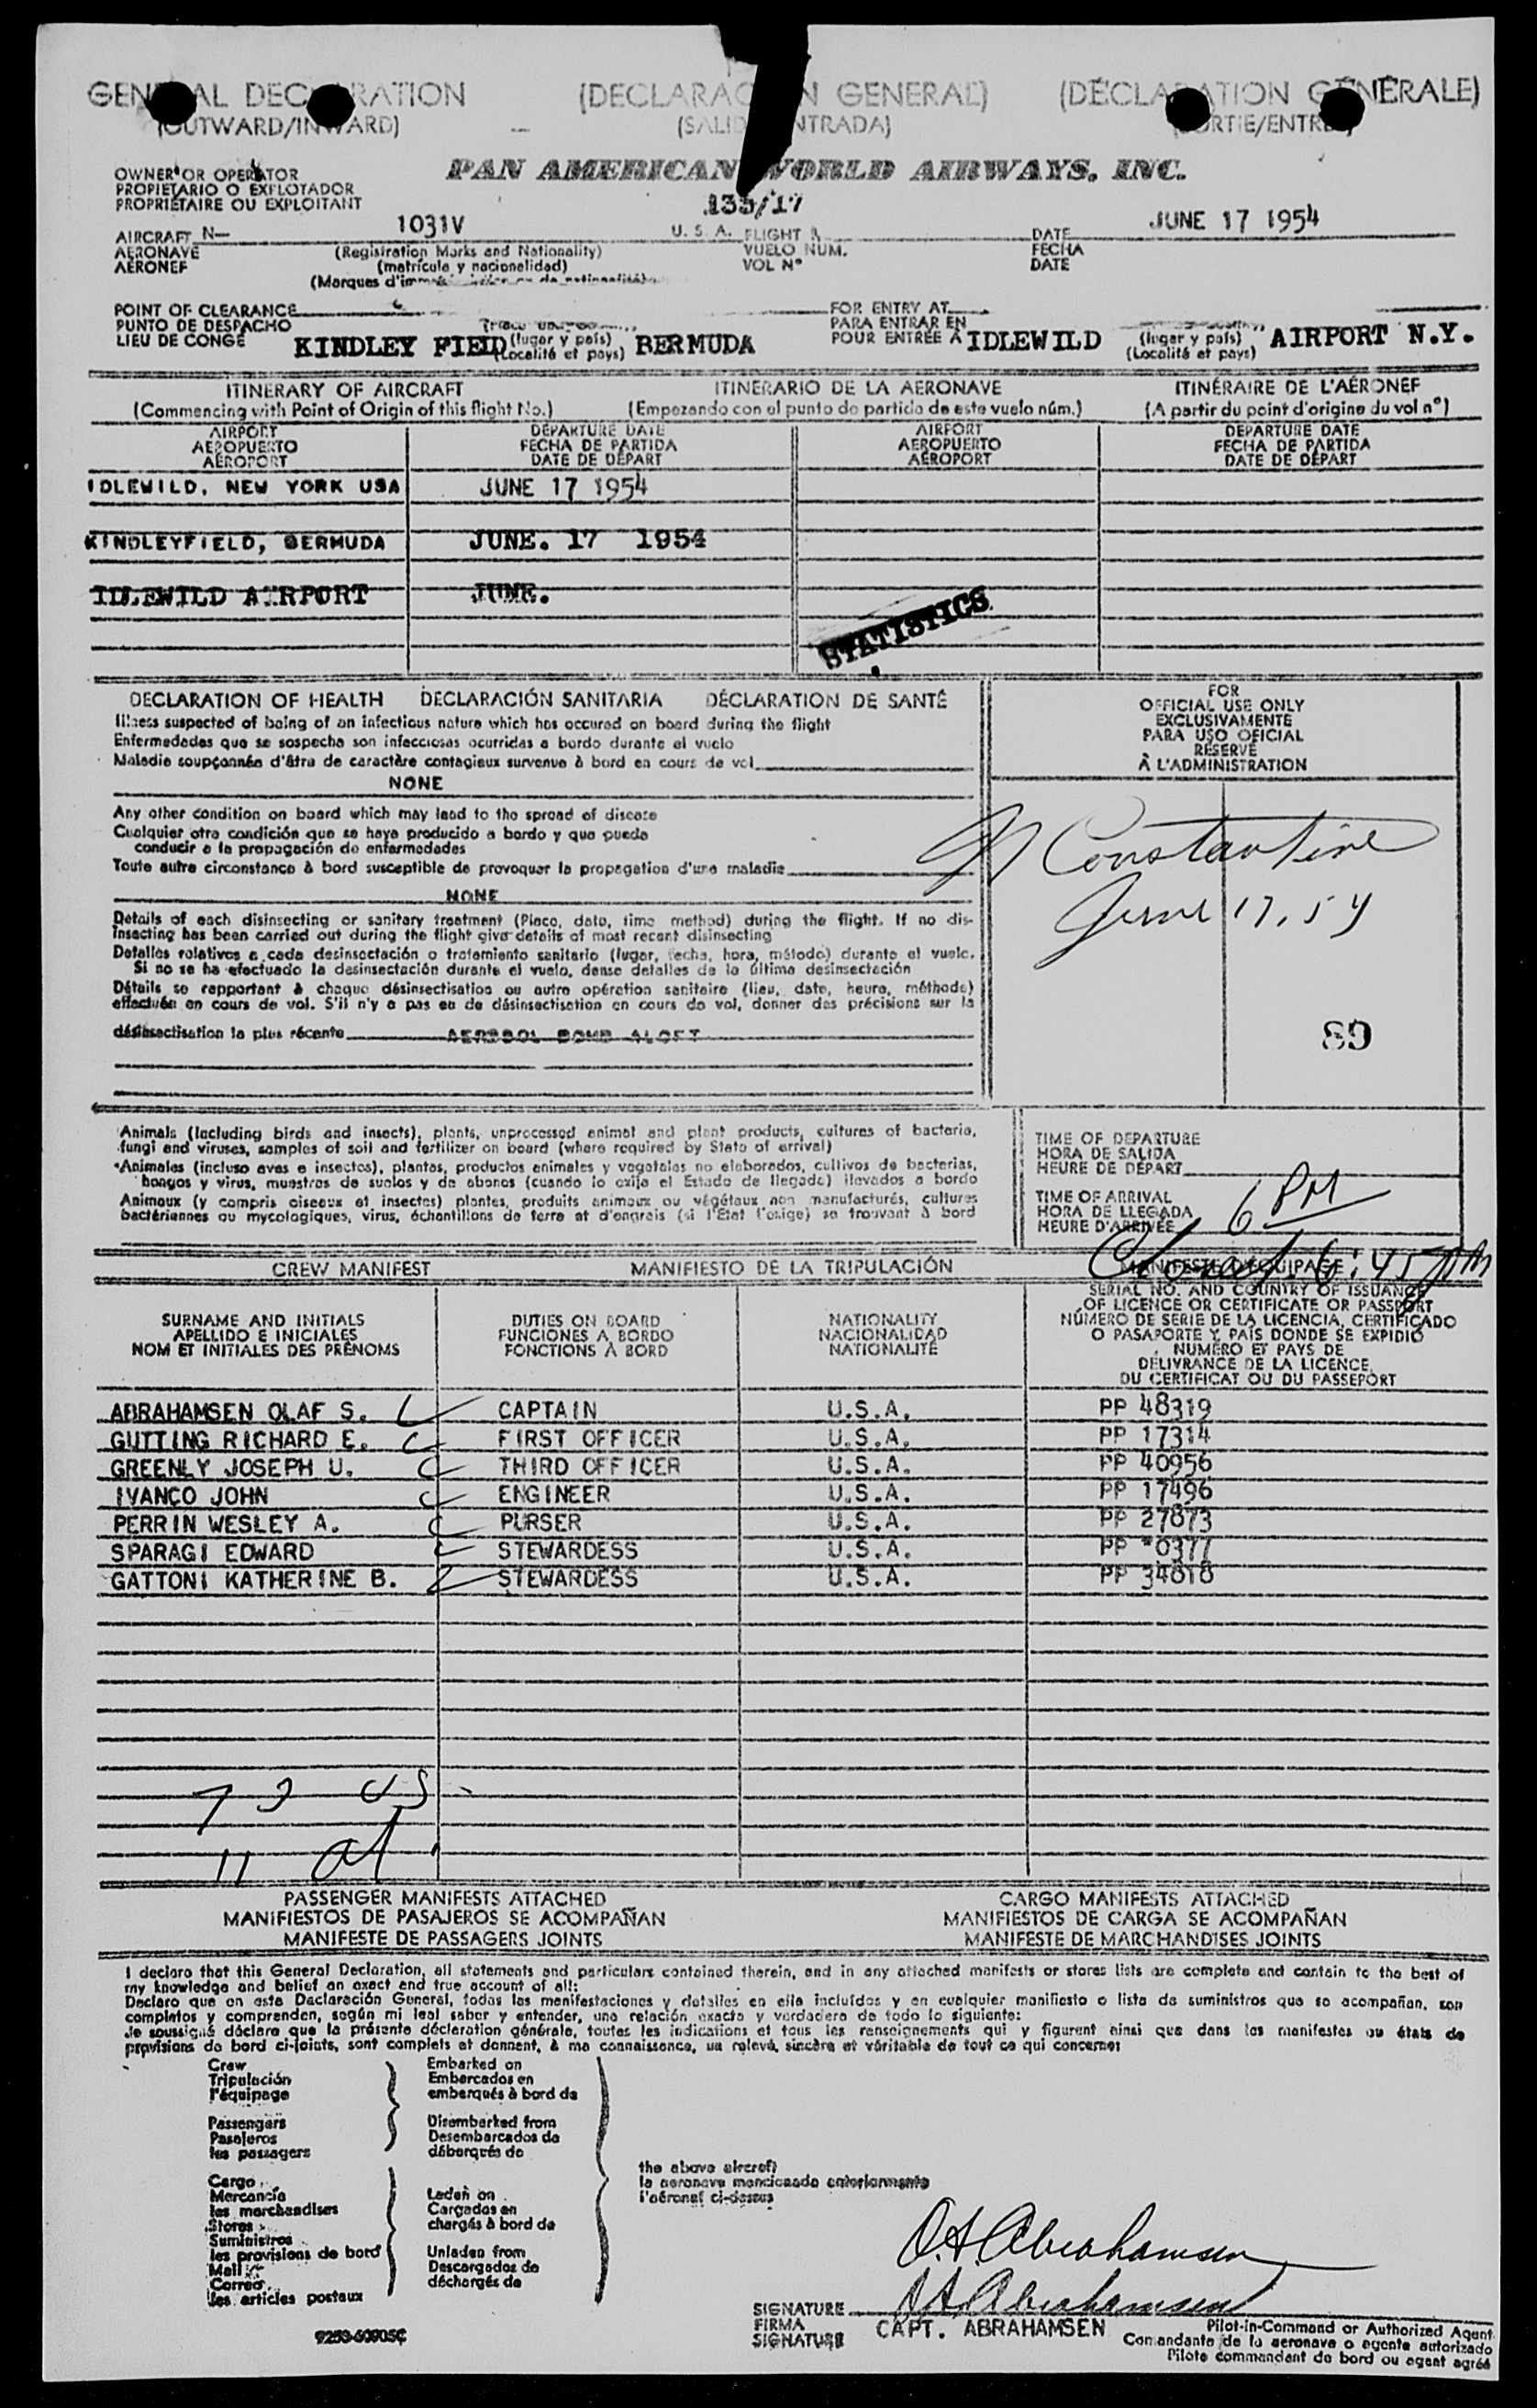 GENERAL DECLARATION (DECLARACIÓN GENERAL) (DÉCLARATION GÉNÉRALE)
(OUTWARD/INWARD) (SALIDA/ENTRADA) (SORTIE/ENTRÉE)
OWNER OR OPERATOR
PAN AMERICAN WORLD AIRWAYS, INC.
PROPIETARIO O EXPLOTADOR
PROPRIÉTAIRE OU EXPLOITANT
135/17
AIRCRAFT N— 1031V U. S. A. FLIGHT DATE JUNE 17 1954
AERONAVE (Registration Marks and Nationality) VUELO NUM. FECHA
AÉRONEF (matrícula y nacionalidad) VOL Nº DATE
(Marques d'
POINT OF CLEARANCE FOR ENTRY AT
PUNTO DE DESPACHO PARA ENTRAR EN
LIEU DE CONGÉ KINDLEY FIELD (lugar y país) BERMUDA POUR ENTRÉE A IDLEWILD (lugar y país) AIRPORT N.Y.
(Localité et pays) (Localité et pays)
ITINERARY OF AIRCRAFT ITINERARIO DE LA AERONAVE ITINÉRAIRE DE L'AÉRONEF
(Commencing with Point of Origin of this flight No.) (Empezando con el punto de partida de este vuelo núm.) (A partir du point d'origine du vol nº)
AIRPORT DEPARTURE DATE AIRPORT DEPARTURE DATE
AEROPUERTO FECHA DE PARTIDA AEROPUERTO FECHA DE PARTIDA
AÉROPORT DATE DE DÉPART AÉROPORT DATE DE DÉPART
IDLEWILD, NEW YORK USA JUNE 17 1954
KINDLEYFIELD, BERMUDA JUNE. 17 1954
IDLEWILD AIRPORT JUNE.
STATISTICS
DECLARATION OF HEALTH DECLARACIÓN SANITARIA DÉCLARATION DE SANTÉ
Illness suspected of being of an infectious nature which has occured on board during the flight
Enfermedades que se sospecha son infecciosas ocurridas a bordo durante el vuelo
Maladie soupçonnée d'être de caractère contagieux survenue à bord en cours de vol
NONE
FOR
OFFICIAL USE ONLY
EXCLUSIVAMENTE
PARA USO OFICIAL
RÉSERVÉ
À L'ADMINISTRATION
Any other condition on board which may lead to the spread of disease
Cualquier otra condición que se haya producido a bordo y que pueda
conducir a la propagación de enfermedades
Toute autre circonstance à bord susceptible de provoquer la propagation d'une maladie
NONE
Constantine
June 17, 54
Details of each disinsecting or sanitary treatment (Place, date, time method) during the flight. If no dis-
insecting has been carried out during the flight give details of most recent disinsecting
Detalles relativos a cada desinsectación o tratamiento sanitario (lugar, fecha, hora, método) durante el vuelo.
Si no se ha efectuado la desinsectación durante el vuelo, dense detalles de la última desinsectación
Détails se rapportant à chaque désinsectisation ou autre opération sanitaire (lieu, date, heure, méthode)
effectuée en cours de vol. S'il n'y a pas eu de désinsectisation en cours de vol, donner des précisions sur la
désinsectisation la plus récente AEROSOL BOMB ALOFT
89
Animals (including birds and insects), plants, unprocessed animal and plant products, cultures of bacteria,
fungi and viruses, samples of soil and fertilizer on board (where required by State of arrival)
Animales (incluso aves e insectos), plantas, productos animales y vegetales no elaborados, cultivos de bacterias,
hongos y virus, muestras de suelos y de abonos (cuando lo exija el Estado de llegada) llevados a bordo
Animaux (y compris oiseaux et insectes) plantes, produits animaux ou végétaux non manufacturés, cultures
bactériennes ou mycologiques, virus, échantillons de terre et d'engrais (si l'État l'exige) se trouvant à bord
TIME OF DEPARTURE
HORA DE SALIDA
HEURE DE DÉPART
TIME OF ARRIVAL
HORA DE LLEGADA
HEURE D'ARRIVÉE 6 PM
6:45 pm
CREW MANIFEST MANIFIESTO DE LA TRIPULACIÓN MANIFESTE D'ÉQUIPAGE
SURNAME AND INITIALS
APELLIDO E INICIALES
NOM ET INITIALES DES PRÉNOMS
DUTIES ON BOARD
FUNCIONES A BORDO
FONCTIONS À BORD
NATIONALITY
NACIONALIDAD
NATIONALITÉ
SERIAL NO. AND COUNTRY OF ISSUANCE
OF LICENCE OR CERTIFICATE OR PASSPORT
NÚMERO DE SERIE DE LA LICENCIA, CERTIFICADO
O PASAPORTE Y PAÍS DONDE SE EXPIDIÓ
NUMÉRO ET PAYS DE
DÉLIVRANCE DE LA LICENCE
DU CERTIFICAT OU DU PASSEPORT
ABRAHAMSEN OLAF S. CAPTAIN U.S.A. PP 48319
GUTTING RICHARD E. FIRST OFFICER U.S.A. PP 17314
GREENLY JOSEPH U. THIRD OFFICER U.S.A. PP 40956
IVANCO JOHN ENGINEER U.S.A. PP 17496
PERRIN WESLEY A. PURSER U.S.A. PP 27873
SPARAGI EDWARD STEWARDESS U.S.A. PP 0377
GATTONI KATHERINE B. STEWARDESS U.S.A. PP 34818
73 US
11 al
PASSENGER MANIFESTS ATTACHED CARGO MANIFESTS ATTACHED
MANIFIESTOS DE PASAJEROS SE ACOMPAÑAN MANIFIESTOS DE CARGA SE ACOMPAÑAN
MANIFESTE DE PASSAGERS JOINTS MANIFESTE DE MARCHANDISES JOINTS
I declare that this General Declaration, all statements and particulars contained therein, and in any attached manifests or stores lists are complete and contain to the best of
my knowledge and belief an exact and true account of all:
Declaro que en esta Declaración General, todas las manifestaciones y detalles en ella incluídos y en cualquier manifiesto o lista de suministros que se acompañan, son
completos y comprenden, según mi leal saber y entender, una relación exacta y verdadera de todo lo siguiente:
Je soussigné déclare que la présente déclaration générale, toutes les indications et tous les renseignements qui y figurent ainsi que dans les manifestes ou états de
provisions de bord ci-joints, sont complets et donnent, à ma connaissance, un relevé, sincère et véritable de tout ce qui concerne:
Crew Embarked on
Tripulación Embarcados en
l'équipage embarqués à bord de
Passengers Disembarked from
Pasajeros Desembarcados de
les passagers débarqués de
the above aircraft
la aeronave mencionada anteriormente
l'aéronef ci-dessus
Cargo
Mercancía Laden on
les marchandises Cargadas en
Stores chargés à bord de
Suministros
les provisions de bord Unladen from
Mail Descargados de
Correo déchargés de
les articles postaux
O.S. Abrahamsen
O.S. Abrahamsen
SIGNATURE
FIRMA CAPT. ABRAHAMSEN
SIGNATURE
Pilot-in-Command or Authorized Agent
Comandante de la aeronave o agente autorizado
Pilote commandant de bord ou agent agréé
9253-60905C